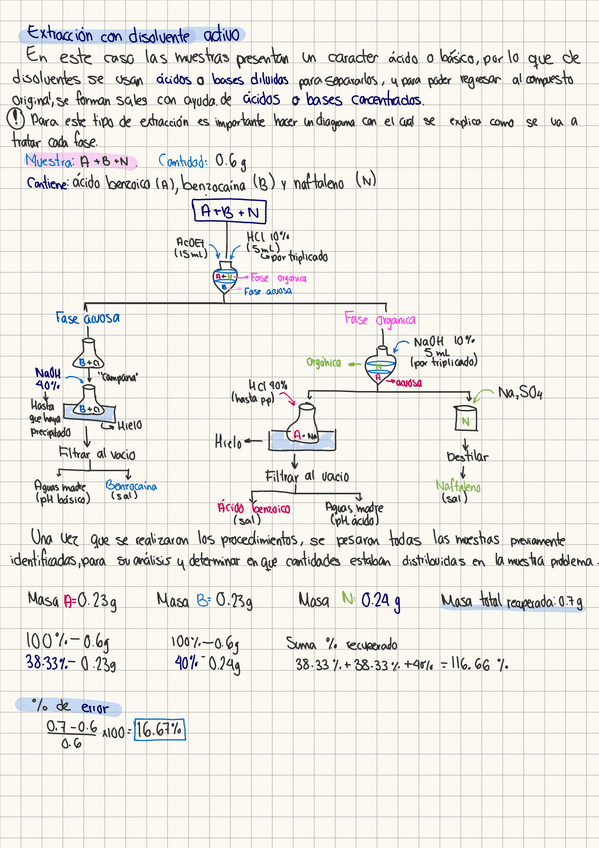 Extracción con disolvente activo
En este caso las muestras presentan un caracter ácido o básico, por lo que de
disolventes se usan ácidos o bases diluidas para separarlos, y para poder regresar al compuesto
original, se forman sales con ayuda de ácidos o bases concentrados.
! Para este tipo de extracción es importante hacer un diagrama con el cual se explica como se va a
tratar cada fase.
Muestra: A+B+N. Cantidad: 0.6g
Contiene: ácido benzoico (A), benzocaína (B) y naftaleno (N)
A+B+N
AcOEt
(15mL)
HCl 10%
(5mL)
por triplicado
A+N
B
Fase orgánica
Fase acuosa
Fase acuosa
B+Cl
"campana"
NaOH
40%
Hasta
que haya
precipitado
B+Cl
Hielo
Filtrar al vacio
Aguas madre
(pH básico)
Benzocaína
(sal)
Fase organica
NaOH 10%
5 mL
(por triplicado)
Orgánica
N
A
acuosa
HCl 40%
(hasta pp)
A-Na
Hielo
Filtrar al vacio
Ácido benzoico
(sal)
Aguas madre
(pH ácido)
Na2SO4
N
Destilar
Naftaleno
(sal)
Una vez que se realizaron los procedimientos, se pesaron todas las muestras previamente
identificadas, para su análisis y determinar en que cantidades estaban distribuidas en la muestra problema.
Masa A=0.23g Masa B=0.23g Masa N: 0.24 g Masa total recuperada: 0.7g
100%-0.6g 100%-0.6g Suma % recuperado
38.33%-0.23g 40%-0.24g 38.33%+38.33%+40%=116.66 %
% de error
0.7-0.6
0.6
x100= 16.67%